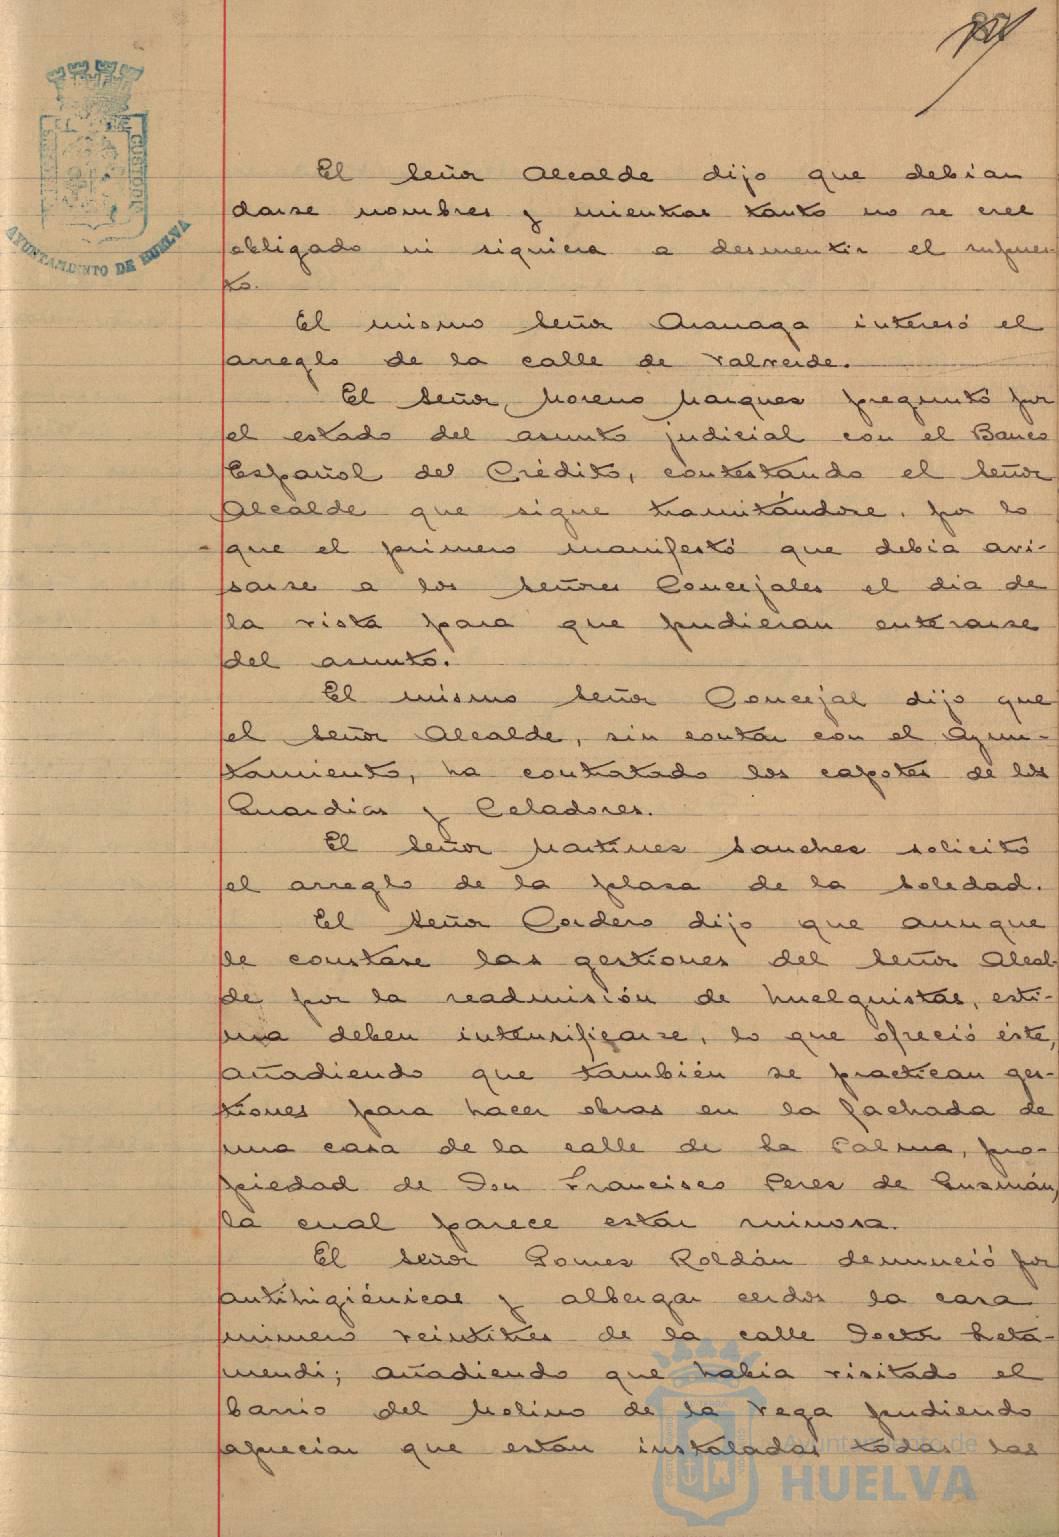 El Señor Alcalde dijo que debian
darse nombres y mientras tanto no se cree
obligado ni siquiera a desmentir el supues-
to.
El mismo Señor Aranaga interesó el
arreglo de la calle de Valverde.
El Señor Moreno Marques preguntó por
el estado del asunto judicial con el Banco
Español del Crédito, contestando el Señor
Alcalde que sigue tramitándose, por lo
que el primero manifestó que debia avi-
sarse a los Señores Concejales el dia de
la vista para que pudieran enterarse
del asunto.
El mismo Señor Concejal dijo que
el Señor Alcalde, sin contar con el Ayun-
tamiento, ha contratado los capotes de los
Guardias y Celadores.
El Señor Martines Sanches solicitó
el arreglo de la plasa de la Soledad.
El Señor Cordero dijo que aunque
le constase las gestiones del Señor Alcal-
de por la readmisión de huelguistas, esti-
ma deben intensificarse, lo que ofreció éste,
añadiendo que también se practican ges-
tiones para hacer obras en la fachada de
una casa de la calle de La Palma, pro-
piedad de Don Francisco Peres de Gusmán,
la cual parece estar ruinosa.
El Señor Gomes Roldán denunció por
antihigiénicas y albergar cerdos la casa
número veintitres de la calle Doctor Leta-
mendi; añadiendo que habia visitado el
barrio del Molino de la Vega pudiendo
apreciar que estan instaladas todas las
AYUNTAMIENTO DE HUELVA
Ayuntamiento de
HUELVA